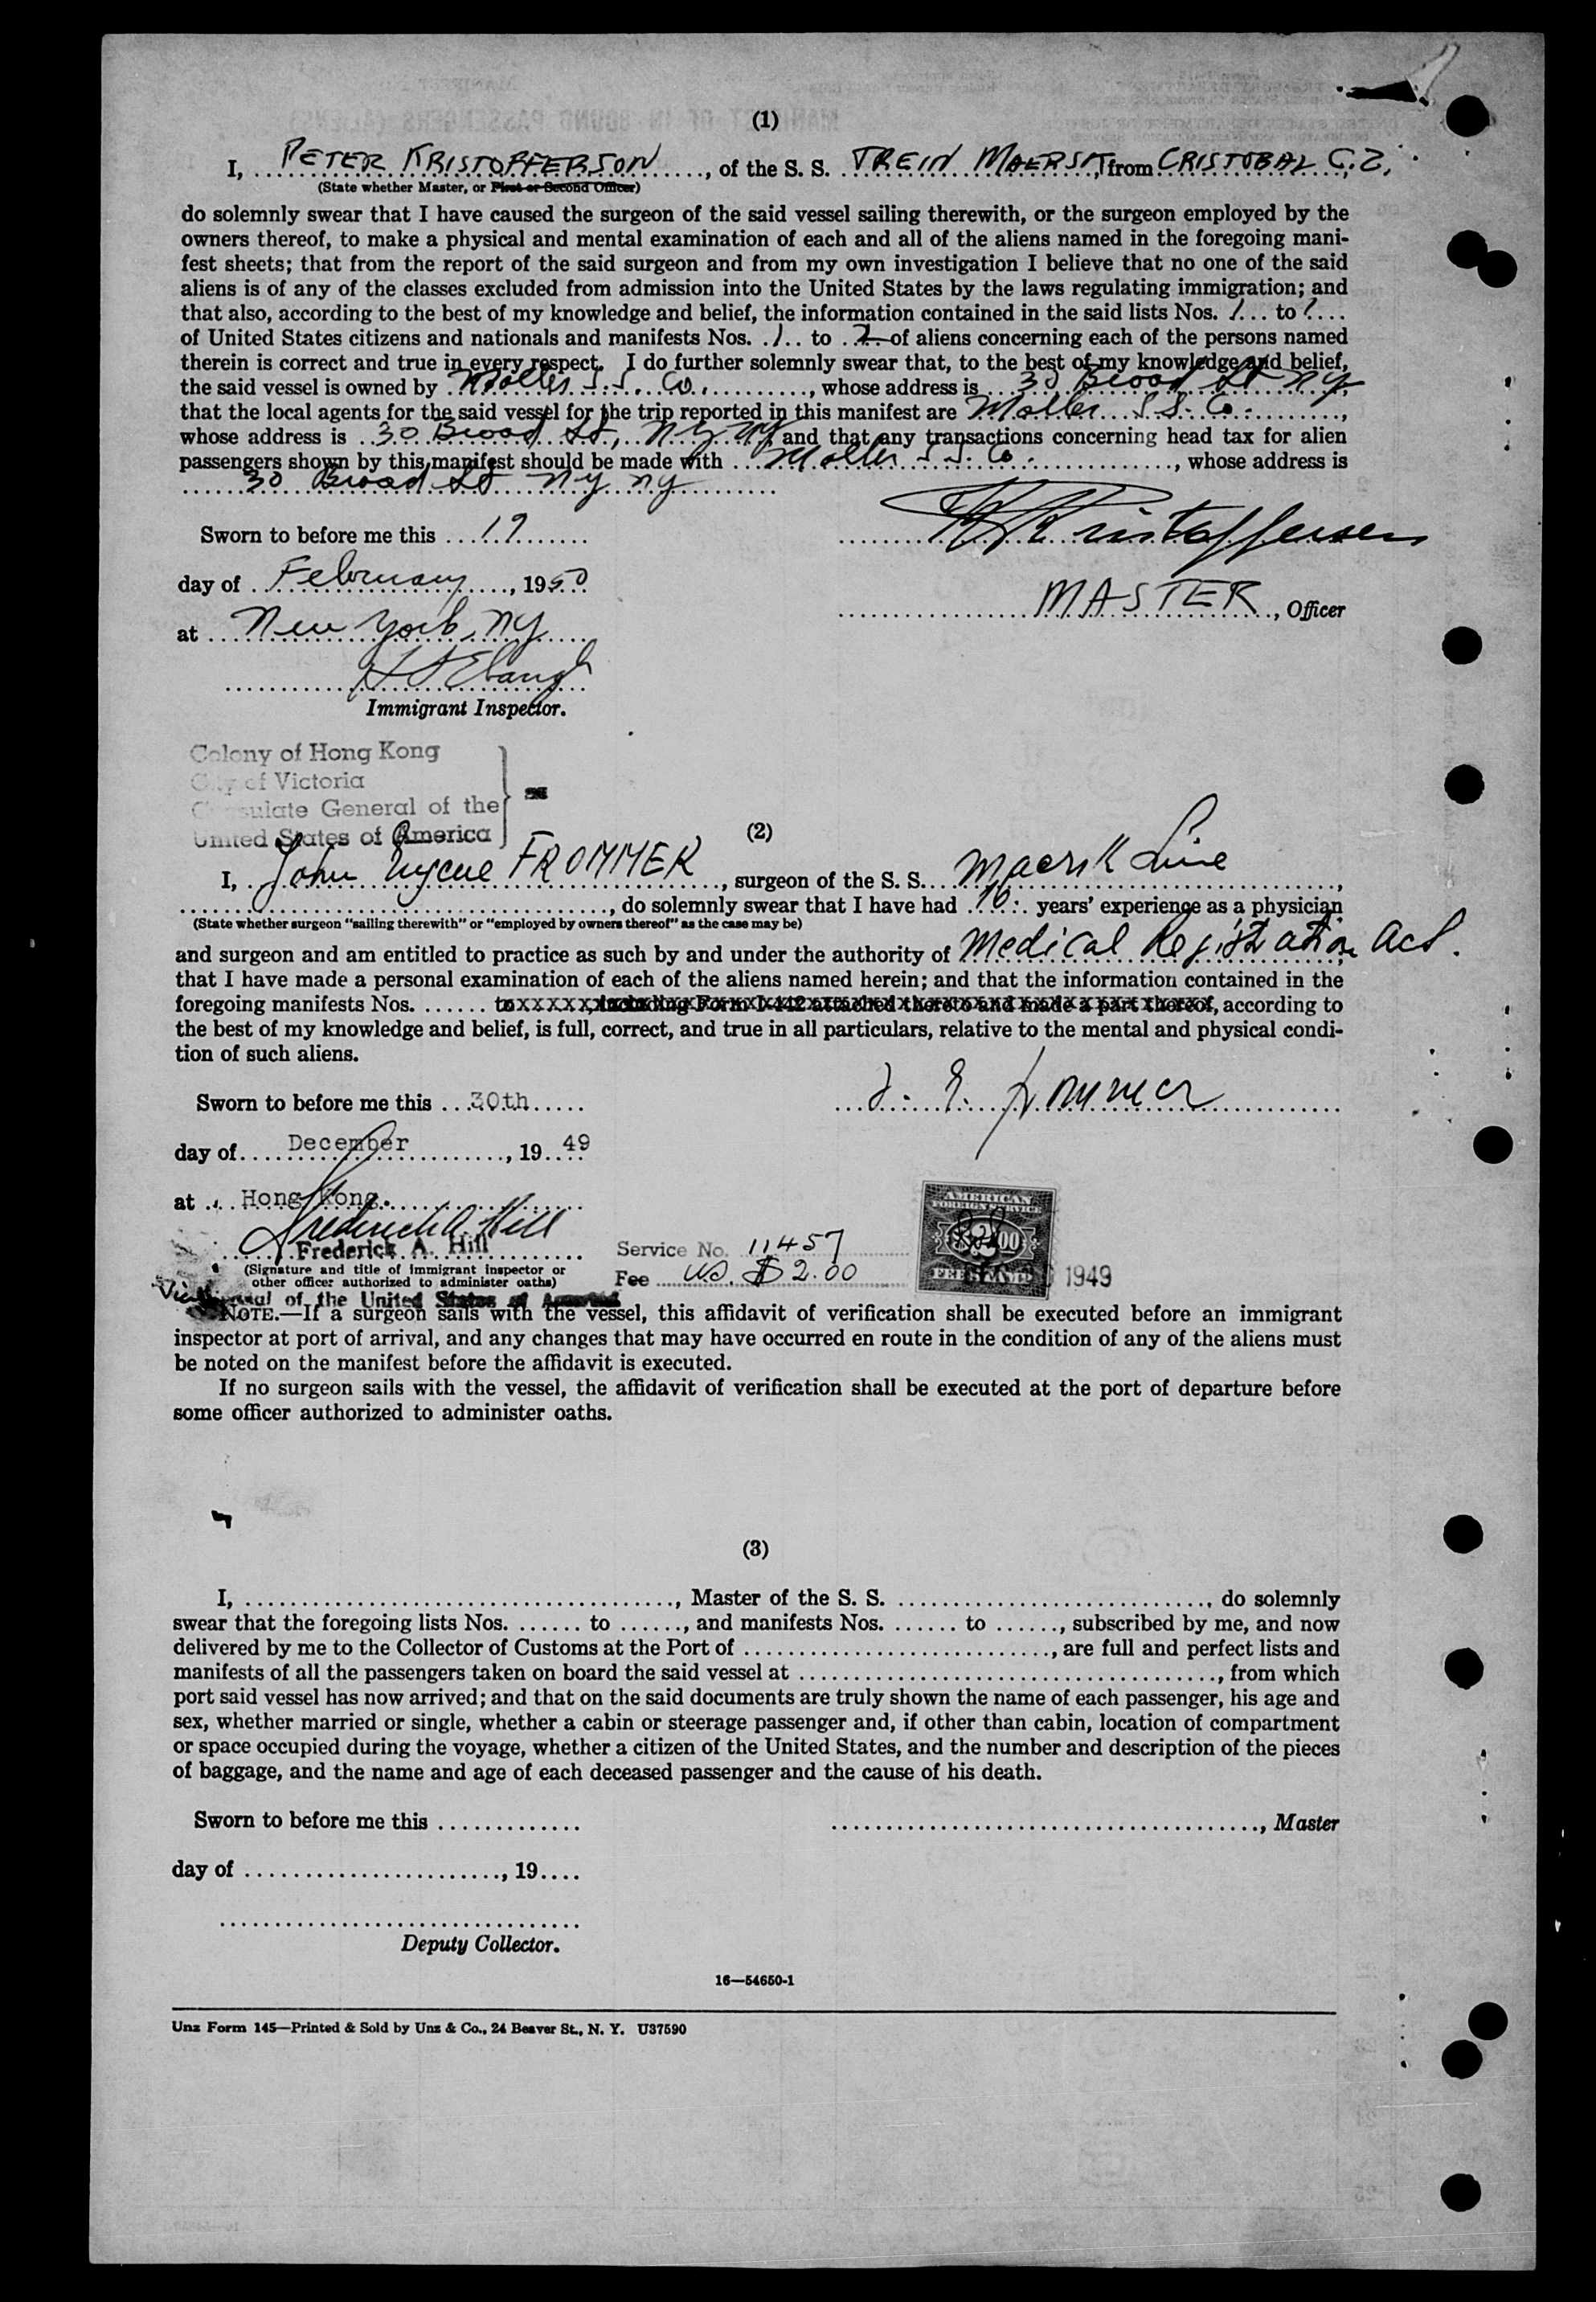 (1)
I, PETER KRISTOFFERSON, of the S. S. TREIN MAERSK, from CRISTOBAL C.Z.
(State whether Master, or First or Second Officer)
do solemnly swear that I have caused the surgeon of the said vessel sailing therewith, or the surgeon employed by the
owners thereof, to make a physical and mental examination of each and all of the aliens named in the foregoing mani-
fest sheets; that from the report of the said surgeon and from my own investigation I believe that no one of the said
aliens is of any of the classes excluded from admission into the United States by the laws regulating immigration; and
that also, according to the best of my knowledge and belief, the information contained in the said lists Nos. 1 to 1
of United States citizens and nationals and manifests Nos. 1 to 2 of aliens concerning each of the persons named
therein is correct and true in every respect. I do further solemnly swear that, to the best of my knowledge and belief,
the said vessel is owned by Moller S.S. Co., whose address is 30 Broad St NY,
that the local agents for the said vessel for the trip reported in this manifest are Moller S.S. Co.,
whose address is 30 Broad St, NY NY and that any transactions concerning head tax for alien
passengers shown by this manifest should be made with Moller S.S. Co., whose address is
30 Broad St NY NY
Sworn to before me this 19 Kristoffersen
day of February, 1950 MASTER, Officer
at New York, NY
Immigrant Inspector.
Colony of Hong Kong
City of Victoria
Consulate General of the
United States of America
(2)
I, John Eugene FROMMER, surgeon of the S. S. Maersk Line,
, do solemnly swear that I have had 10 years' experience as a physician
(State whether surgeon "sailing therewith" or "employed by owners thereof" as the case may be)
and surgeon and am entitled to practice as such by and under the authority of Medical Registration Act.
that I have made a personal examination of each of the aliens named herein; and that the information contained in the
foregoing manifests Nos. ....... to xxxxxxx, including Form I-442 attached thereto and made a part thereof, according to
the best of my knowledge and belief, is full, correct, and true in all particulars, relative to the mental and physical condi-
tion of such aliens.
Sworn to before me this 30th J. E. Frommer
day of December, 19 49
at Hong Kong.
Frederick A. Hill
Frederick A. Hill
(Signature and title of immigrant inspector or
other officer authorized to administer oaths)
Service No. 11457
Fee US $2.00
AMERICAN
FOREIGN SERVICE
$2.00
FEE STAMP
1949
of the United States of America
NOTE.—If a surgeon sails with the vessel, this affidavit of verification shall be executed before an immigrant
inspector at port of arrival, and any changes that may have occurred en route in the condition of any of the aliens must
be noted on the manifest before the affidavit is executed.
If no surgeon sails with the vessel, the affidavit of verification shall be executed at the port of departure before
some officer authorized to administer oaths.
(3)
I, ......................................., Master of the S. S. ............................, do solemnly
swear that the foregoing lists Nos. ....... to ......, and manifests Nos. ....... to ......, subscribed by me, and now
delivered by me to the Collector of Customs at the Port of ............................, are full and perfect lists and
manifests of all the passengers taken on board the said vessel at ......................................, from which
port said vessel has now arrived; and that on the said documents are truly shown the name of each passenger, his age and
sex, whether married or single, whether a cabin or steerage passenger and, if other than cabin, location of compartment
or space occupied during the voyage, whether a citizen of the United States, and the number and description of the pieces
of baggage, and the name and age of each deceased passenger and the cause of his death.
Sworn to before me this ............. ......................................, Master
day of ........................, 19....
Deputy Collector.
16—54650-1
Unz Form 145—Printed & Sold by Unz & Co., 24 Beaver St., N. Y. U37590